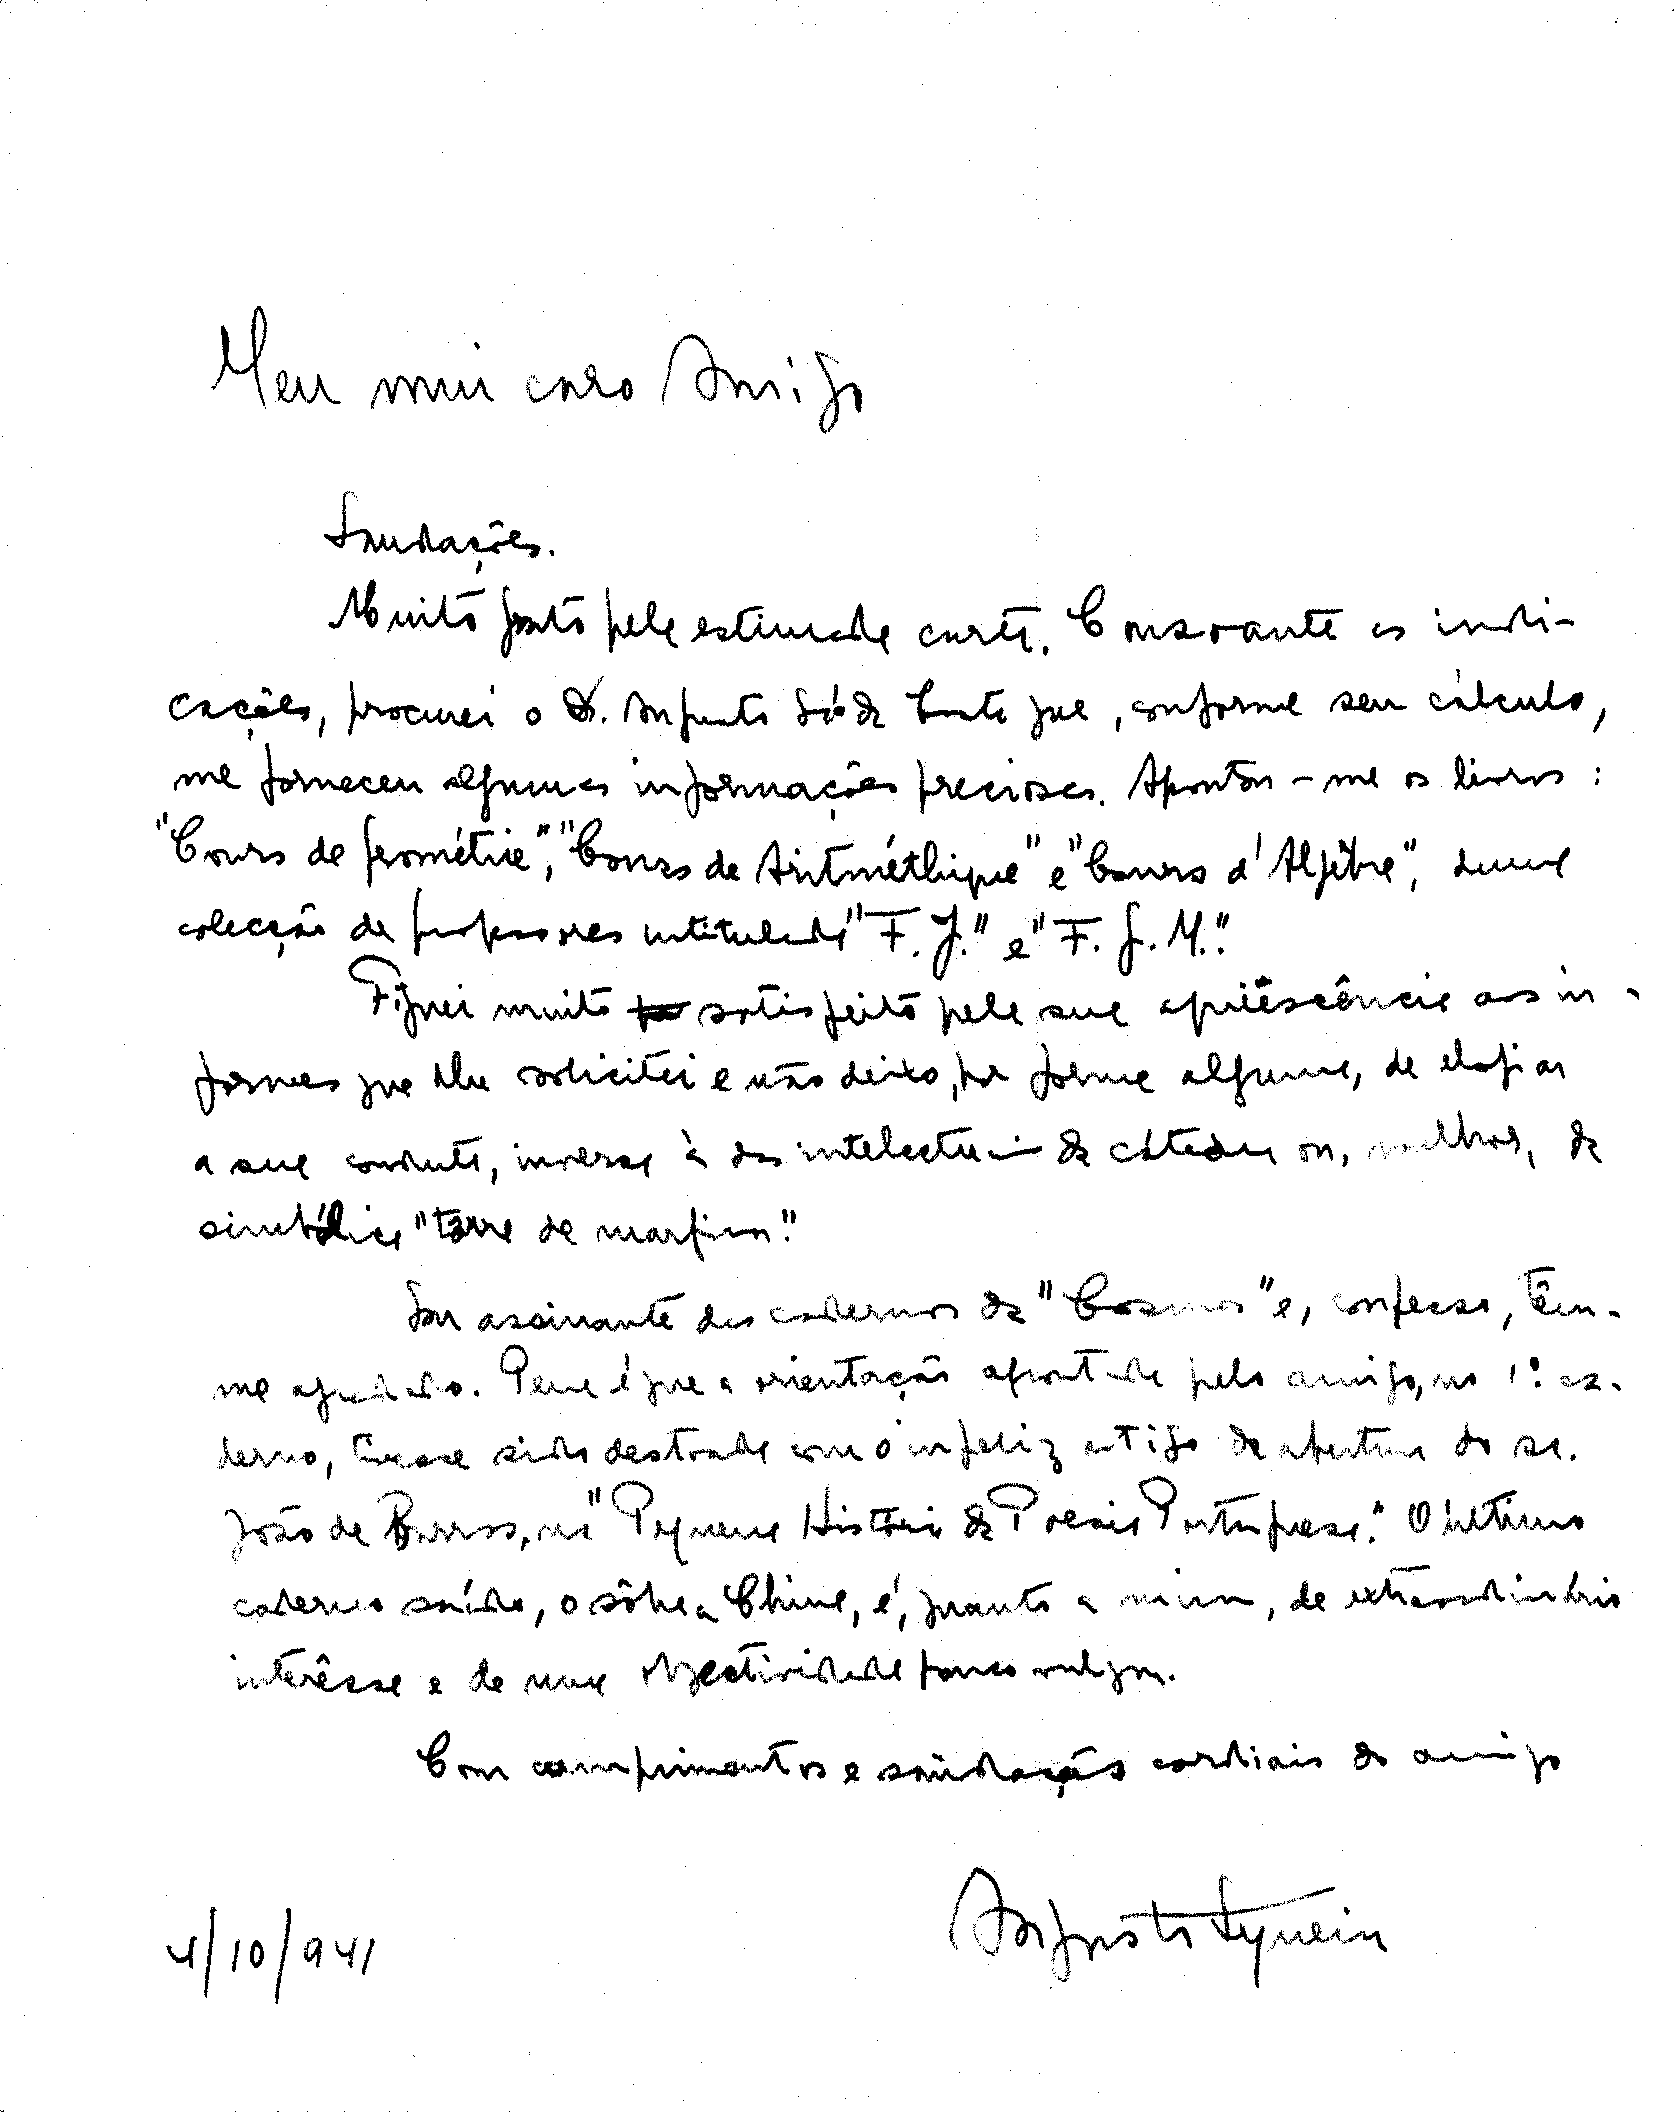 Meu mui caro Amigo
Saudações.
Muito grato pela estimada carta. Consoante as indi-
cações, procurei o Dr. Augusto Sá da Costa que, conforme seu cálculo,
me forneceu algumas informações preciosas. Apontou-me os livros:
"Cours de géométrie", "Cours de Aritméthique" e "Cours d'Algèbre", duma
colecção de professores intitulada "F. J." e "F. G. M.".
Fiquei muito satisfeito pela sua aquiescência aos in-
formes que lhe solicitei e não deixo, por forma alguma, de elogiar
a sua conduta, inversa à dos intelectuais da cátedra ou, melhor, da
simbólica "tôrre de marfim."
Sou assinante dos cadernos da "Cosmos" e, confesso, têm-
me agradado. Pena é que a orientação apontada pelo amigo, no 1.º ca-
derno, tivesse sido destroada com o infeliz artigo de abertura do sr.
João de Barros, na "Pequena História da Poesia Portuguesa." O último
caderno saído, o sôbre a China, é, quanto a mim, de extraordinário
interêsse e de uma objectividade pouco vulgar.
Com cumprimentos e saüdações cordiais do amigo
Augusto
4/10/941